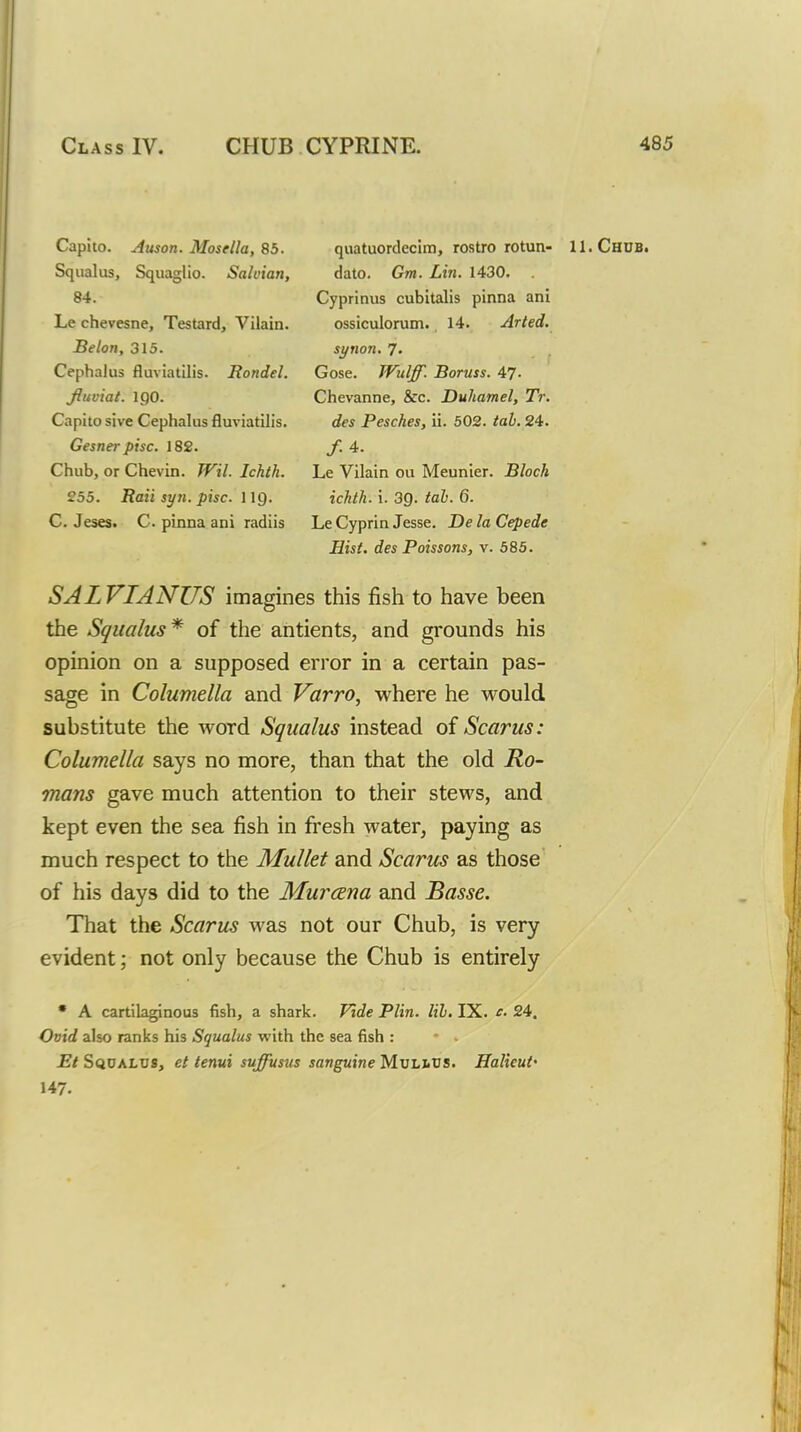 Class IV. CHUB CYPRINE. 485
Capito. Auson. Mosella, 85.
Squalus, Squaglio. Salvian,
84.
Le chevesne, Testard, Vilain.
Belon, 315.
Cephalus fluviatilis. Rondel.
fluviat. 190.
Capito sive Cephalus fluviatilis.
Gesner pisc. 182.
Chub, or Chevin. Wil. Ichth.
255. Raii syn. pisc. 119.
C. Jeses. C. pinna ani radiis
quatuordecim, rostro rotun-
dato. Gm. Lin. 1430.
Cyprinus cubitalis pinna ani
ossiculorum. 14. Arted.
synon. 7.
Gose. Wulff. Boruss. 47.
Chevanne, &c. Duhamel, Tr.
des Pesches, ii. 502. tab. 24.
f. 4.
Le Vilain ou Meunier. Bloch
ichth. i. 39. tab. 6.
Le Cyprin Jesse. De la Cepede
Hist. des Poissons, v. 585.
11. Chub.
SALVIANUS imagines this fish to have been
the Squalus * of the antients, and grounds his
opinion on a supposed error in a certain pas-
sage in Columella and Varro, where he would
substitute the word Squalus instead of Scarus:
Columella says no more, than that the old Ro-
mans gave much attention to their stews, and
kept even the sea fish in fresh water, paying as
much respect to the Mullet and Scarus as those
of his days did to the Muræna and Basse.
That the Scarus was not our Chub, is very
evident; not only because the Chub is entirely
* A cartilaginous fish, a shark. Vide Plin. lib. IX. c. 24.
Ovid also ranks his Squalus with the sea fish :
Et Squalus, et tenui suffusus sanguine Mullus. Halieut·
147.